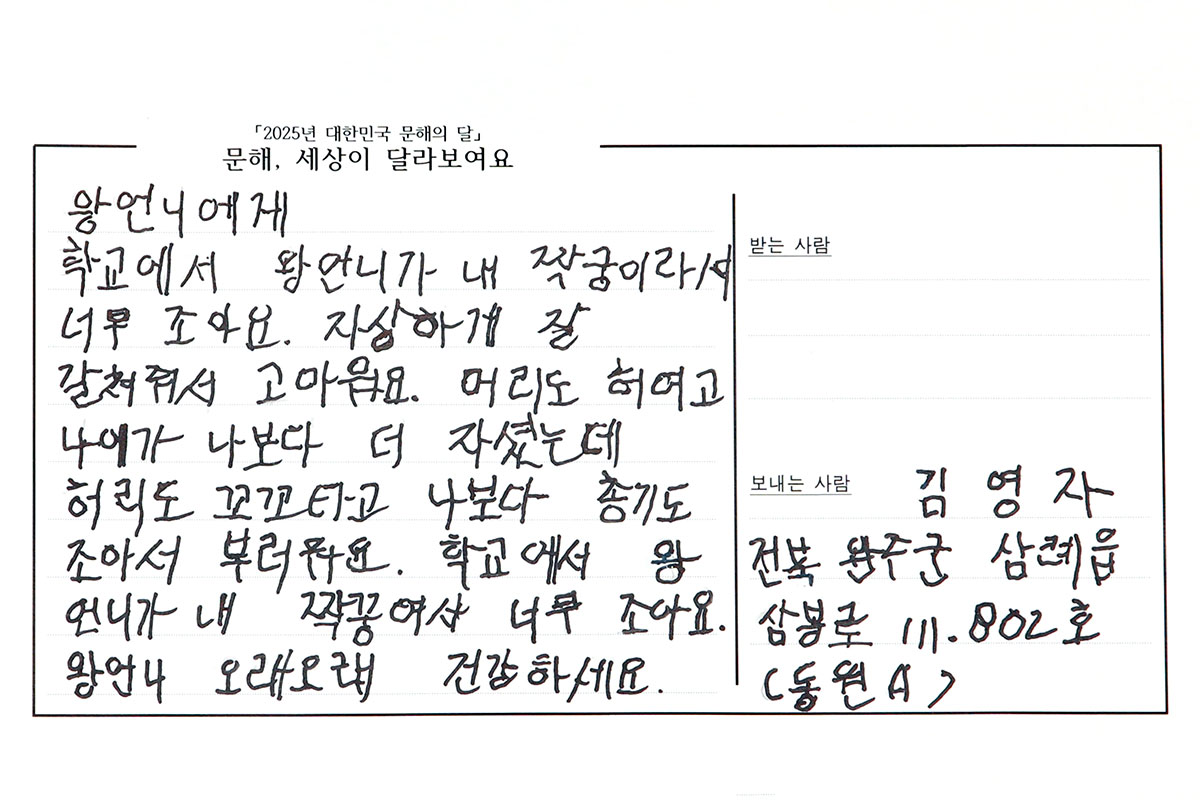 「2025년 대한민국 문해의 달」
문해, 세상이 달라보여요
왕언니에게
학교에서 왕언니가 내 짝궁이라서
너무 조아요. 자상하게 잘
갈쳐줘서 고마워요. 머리도 허여고
나에가 나보다 더 자셨는데
허리도 꼬꼬타고 나보다 총기도
조아서 부러워요. 학교에서 왕
언니가 내 짝꿍여사 너무 조아요.
왕언니 오래오래 건강하세요.
받는 사람
보내는 사람 김영자
전북 완주군 삼례읍
삼봉로 111. 802호
(동원A)